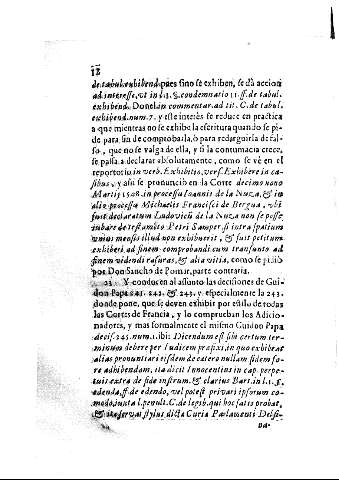 12
de tabul. exhibend. pues si no se exhiben, se dà accion
ad interesse, vt in l. 3. §. condemnatio 11. ff. de tabul.
exhibend. Donel. in commentar. ad tit. C. de tabul.
exhibend. num. 7. y este interès se reduce en practica
a que mientras no se exhibe la escritura quando se pi-
de para fin de comprobarla, ò para redarguirla de fal-
so, que no se valga de ella, y si la contumacia crece,
se passa a declarar absolutamente, como se vè en el
reportorio in verb. Exhibitio, vers. Exhibere in ca-
sibus, y assi se pronunciò en la Corte decimo nono
Martij 1508. in processu Ioannis de la Nuza, & in
alio processu Michaelis Francisci de Bergua, vbi
fuit declaratum Ludovicũ de la Nuza non se posse
iubare de testamẽto Petri Samper si intra spatium
vnius mensis illud non exhibuerit, & fuit petitum
exhiberi ad finem comprobandi cum transunto ad
finem videndi rasuras, & alia vitia, como se pidiò
por Don Sancho de Pomar, parte contraria.
23 Y conducen al assunto las decisiones de Gui-
don Papa 241. 242. & 243. y especialmente la 243.
donde pone, que se deven exhibir por estilo de todas
las Cortes de Francia, y lo comprueban los Adicio-
nadores, y mas formalmente el mismo Guidon Papa
decis. 245. num. 1. ibi: Dicendum est sibi certum ter-
minum debere per Iudicem præfixi, in quo exhibeat
alias pronuntiari eisdem de cætero nullam fidem fo-
re adhibendam, ita dicit Innocentius in cap. perpe-
tuis extra de fide instrum. & clarius Bart. in l. 1. §.
edenda, ff. de edendo, vel potest privari ipsorum co-
modo, iuxta l. penult. C. de legib. qui hoc satis probat,
& ita servat stylus dicta Curia Parlamenti Delfi-
na-